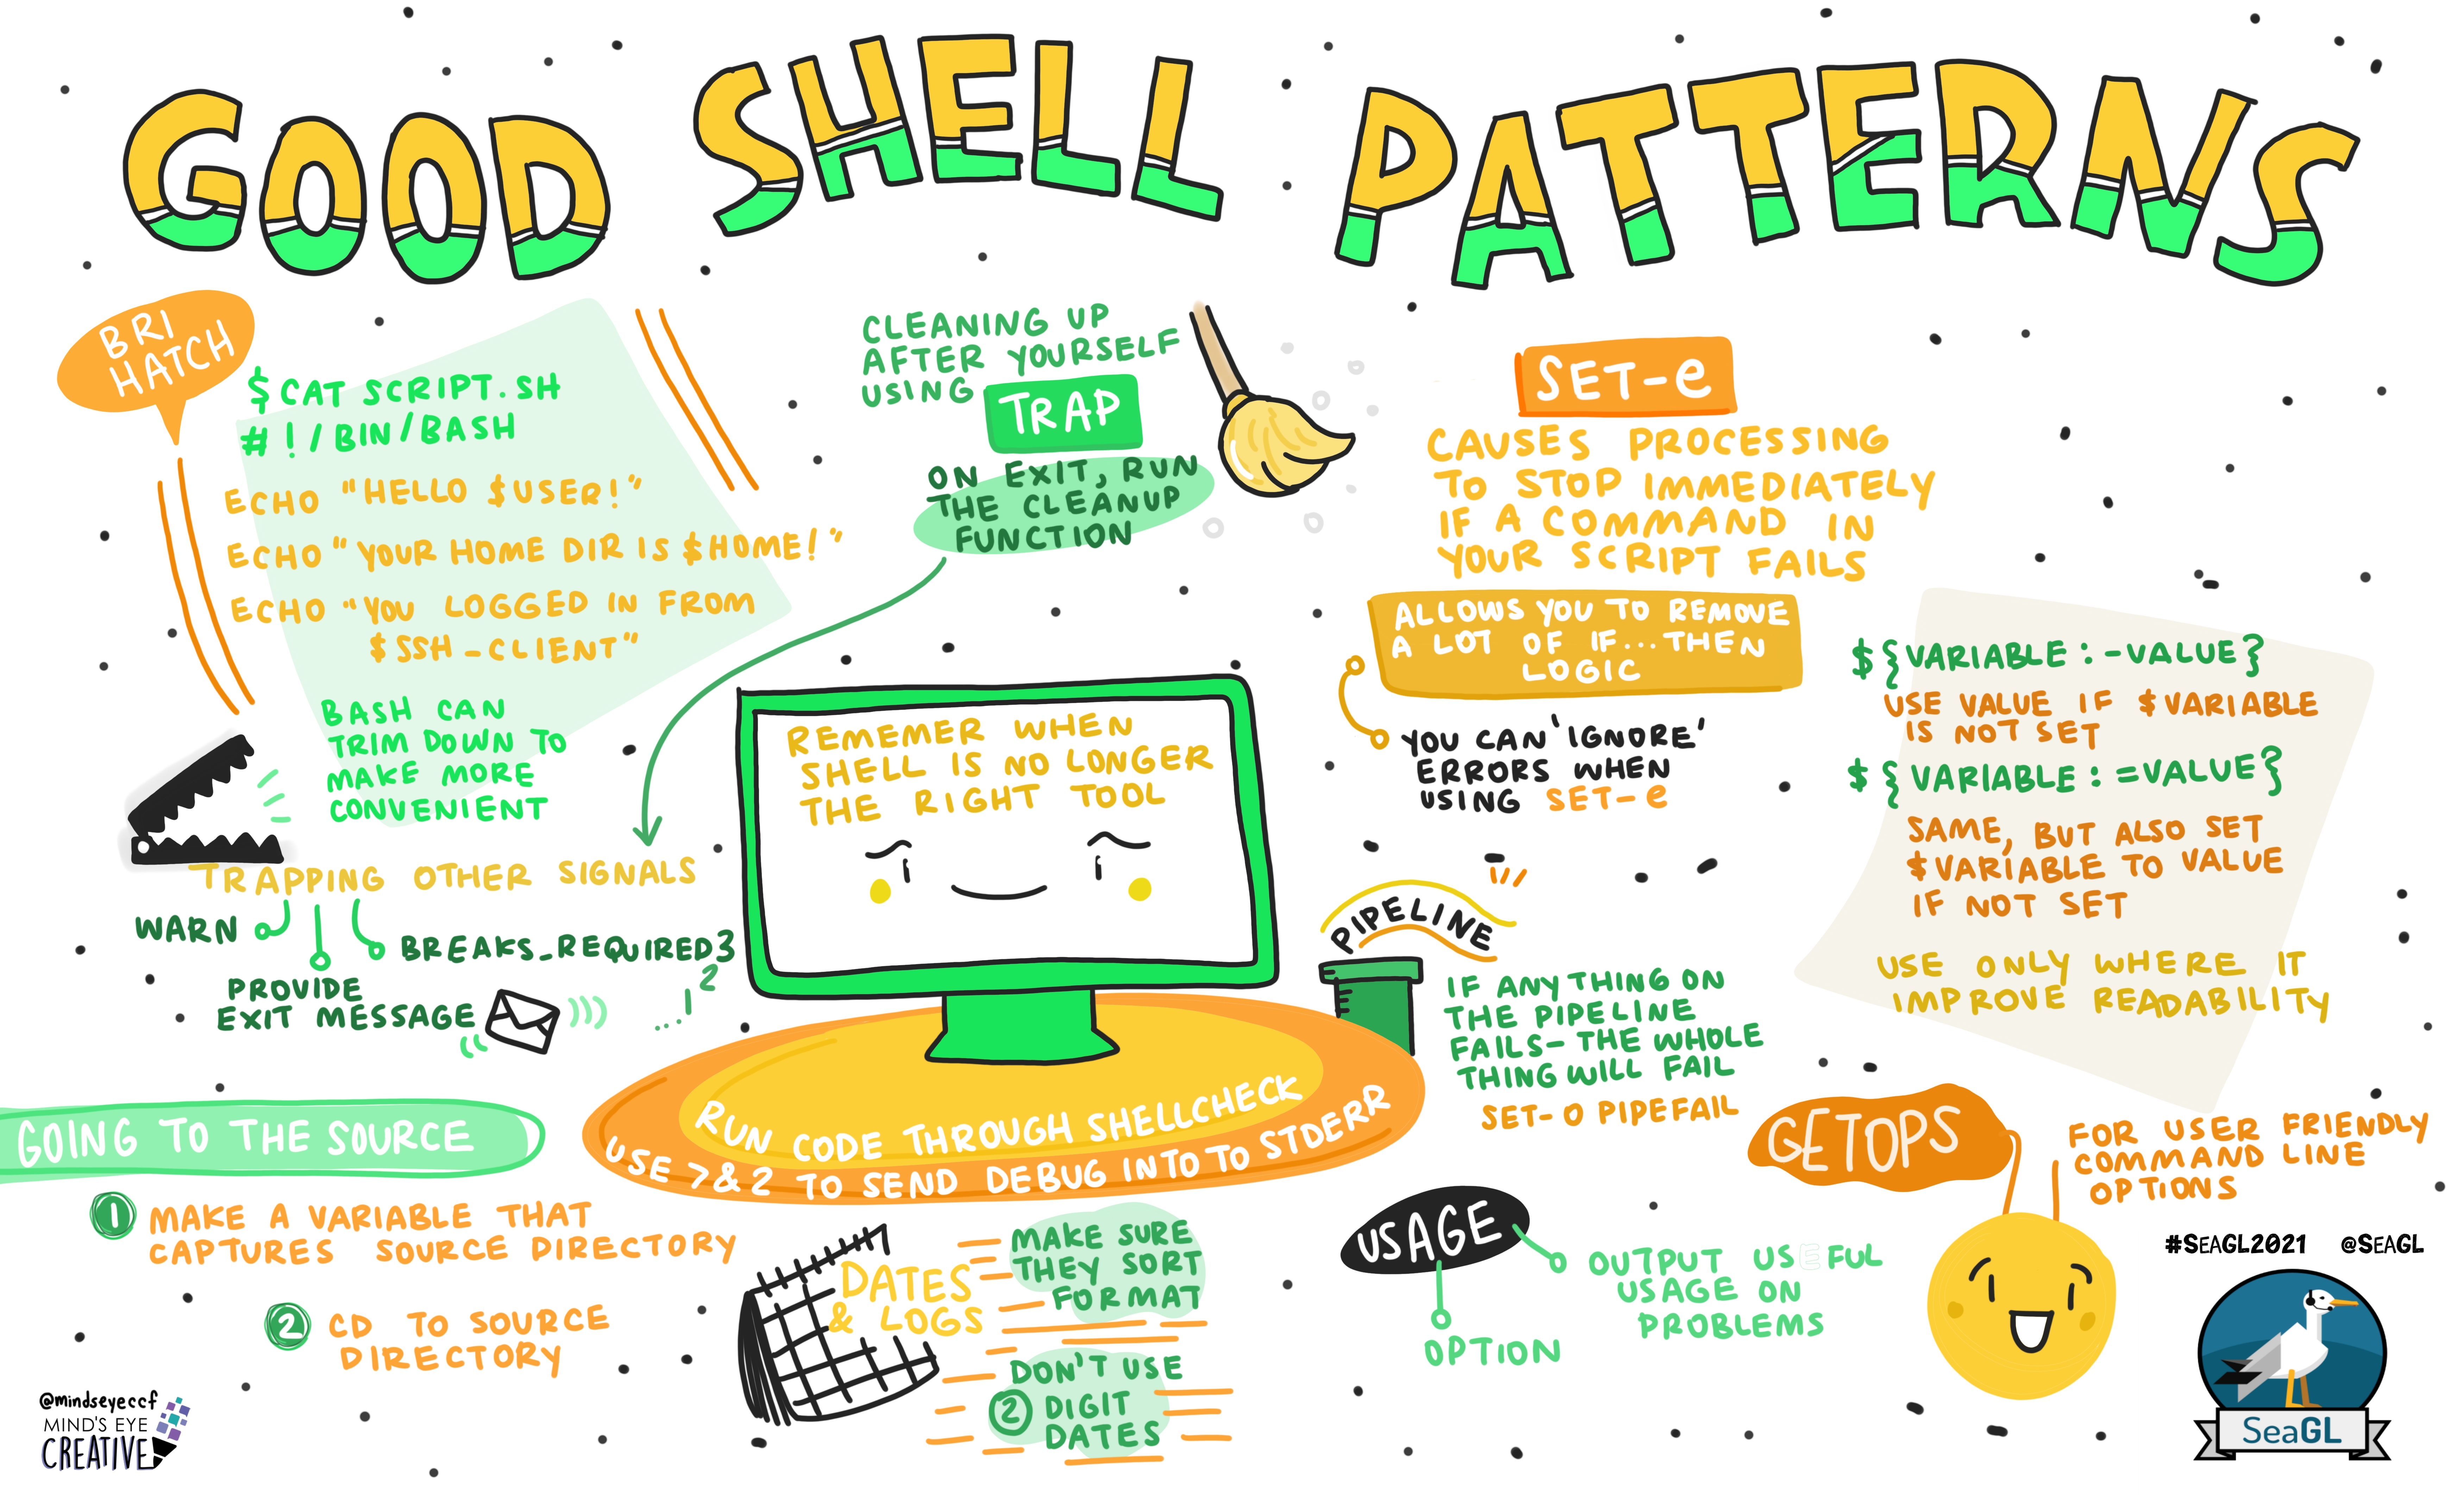 GOOD SHELL PATTERNS
BRI
HATCH
$ CAT SCRIPT.SH
#!/BIN/BASH
ECHO "HELLO $USER!"
ECHO "YOUR HOME DIR IS $HOME!"
ECHO "YOU LOGGED IN FROM
$SSH_CLIENT"
BASH CAN
TRIM DOWN TO
MAKE MORE
CONVENIENT
CLEANING UP
AFTER YOURSELF
USING
TRAP
ON EXIT, RUN
THE CLEANUP
FUNCTION
TRAPPING OTHER SIGNALS
WARN
PROVIDE
EXIT MESSAGE
BREAKS_REQUIRED3
2
...1
REMEMER WHEN
SHELL IS NO LONGER
THE RIGHT TOOL
RUN CODE THROUGH SHELLCHECK
USE >&2 TO SEND DEBUG INTO TO STDERR
SET-e
CAUSES PROCESSING
TO STOP IMMEDIATELY
IF A COMMAND IN
YOUR SCRIPT FAILS
ALLOWS YOU TO REMOVE
A LOT OF IF...THEN
LOGIC
YOU CAN 'IGNORE'
ERRORS WHEN
USING SET-e
${VARIABLE:-VALUE}
USE VALUE IF $VARIABLE
IS NOT SET
${VARIABLE:=VALUE}
SAME, BUT ALSO SET
$VARIABLE TO VALUE
IF NOT SET
USE ONLY WHERE IT
IMPROVE READABILITY
PIPELINE
IF ANYTHING ON
THE PIPELINE
FAILS-THE WHOLE
THING WILL FAIL
SET-O PIPEFAIL
GOING TO THE SOURCE
1 MAKE A VARIABLE THAT
CAPTURES SOURCE DIRECTORY
2 CD TO SOURCE
DIRECTORY
DATES
& LOGS
MAKE SURE
THEY SORT
FORMAT
DON'T USE
2 DIGIT
DATES
USAGE
OUTPUT USEFUL
USAGE ON
PROBLEMS
OPTION
GETOPS
FOR USER FRIENDLY
COMMAND LINE
OPTIONS
#SEAGL2021 @SEAGL
SeaGL
@mindseyeccf
MIND'S EYE
CREATIVE